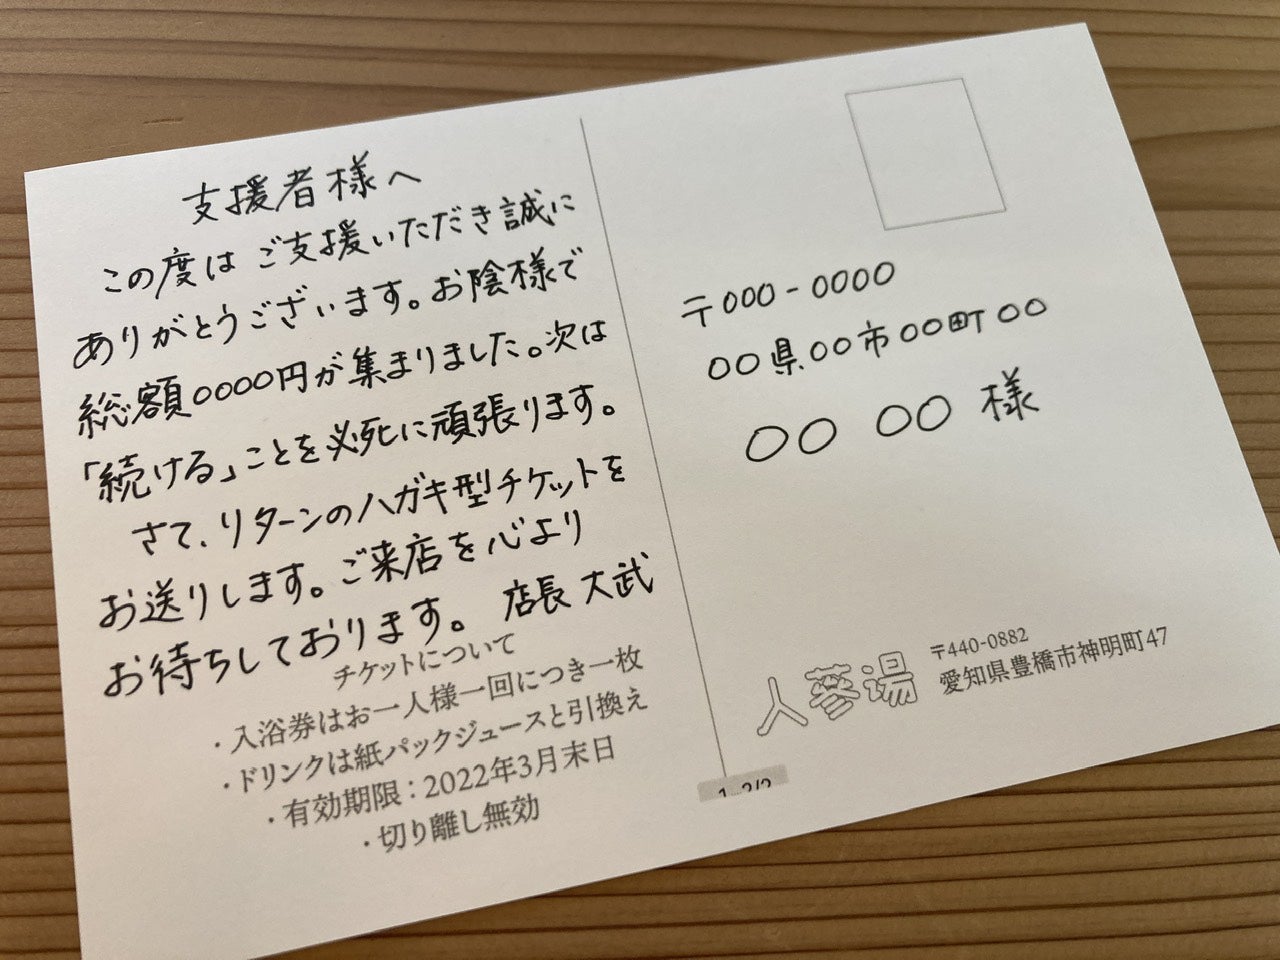 支援者様へ
この度はご支援いただき誠に
ありがとうございます。お陰様で
総額〇〇〇〇円が集まりました。次は
「続ける」ことを必死に頑張ります。
さて、リターンのハガキ型チケットを
お送りします。ご来店を心より
お待ちしております。 店長 大武
チケットについて
・入浴券はお一人様一回につき一枚
・ドリンクは紙パックジュースと引換え
・有効期限：2022年3月末日
・切り離し無効
〒000-0000
〇〇県〇〇市〇〇町〇〇
〇〇 〇〇 様
人蔘湯
〒440-0882
愛知県豊橋市神明町47